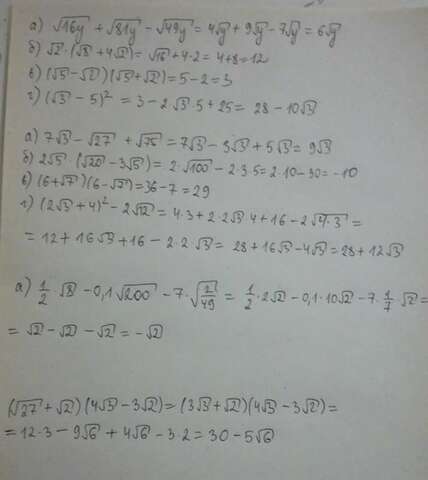 а) √16y + √81y − √49y = 4√y + 9√y − 7√y = 6√y
б) √2 · (√8 + 4√2) = √16 + 4·2 = 4+8 = 12
в) (√5 − √2)(√5 + √2) = 5 − 2 = 3
г) (√3 − 5)² = 3 − 2√3·5 + 25 = 28 − 10√3
а) 7√3 − √27 + √75 = 7√3 − 3√3 + 5√3 = 9√3
б) 2√5 · (√20 − 3√5) = 2·√100 − 2·3·5 = 2·10 − 30 = −10
в) (6+√7)(6−√7) = 36 − 7 = 29
г) (2√3 + 4)² − 2√12 = 4·3 + 2·2√3 4 + 16 − 2√4·3 =
= 12 + 16√3 + 16 − 2·2√3 = 28 + 16√3 − 4√3 = 28 + 12√3
а) 1/2 √8 − 0,1√200 − 7·√2/49 = 1/2 · 2√2 − 0,1·10√2 − 7·1/7·√2 =
= √2 − √2 − √2 = −√2
(√27 + √2)(4√3 − 3√2) = (3√3 + √2)(4√3 − 3√2) =
= 12·3 − 9√6 + 4√6 − 3·2 = 30 − 5√6